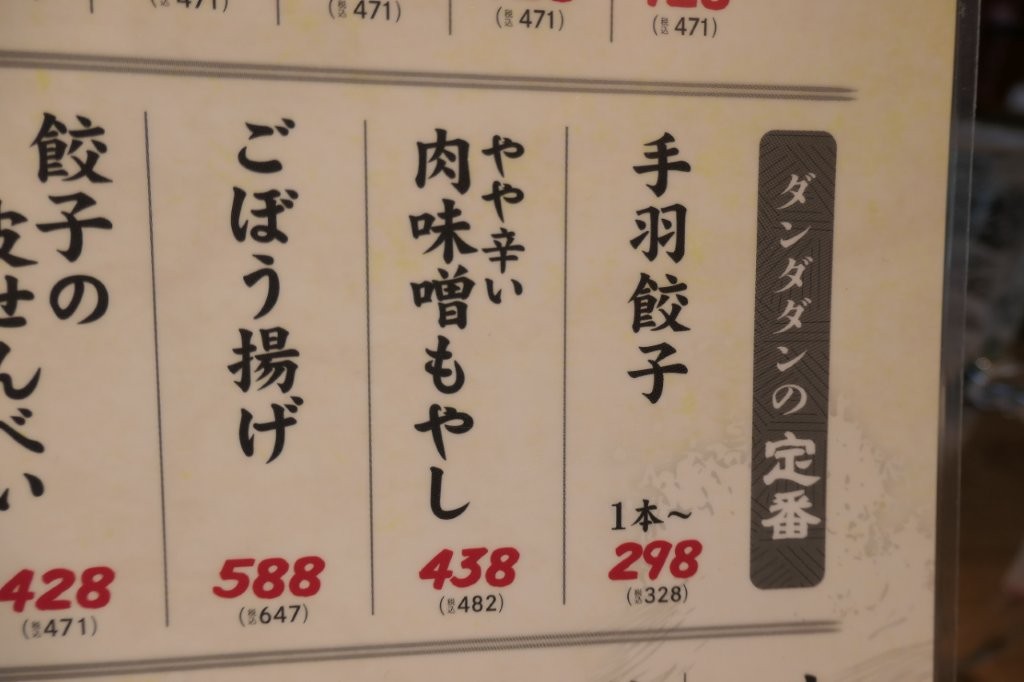 (税込471)
(税込471)
(税込471)
ダンダダンの定番
手羽餃子
1本～
298
(税込328)
やや辛い
肉味噌もやし
438
(税込482)
ごぼう揚げ
588
(税込647)
餃子の
皮せんべい
428
(税込471)